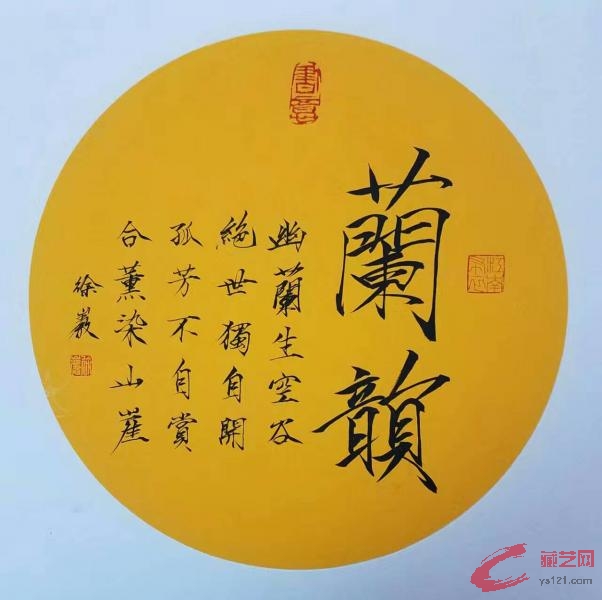 書意
蘭韻
幽蘭生空谷
絶世獨自開
孤芳不自賞
合薰染山崖
徐
藏艺网
ys121.com